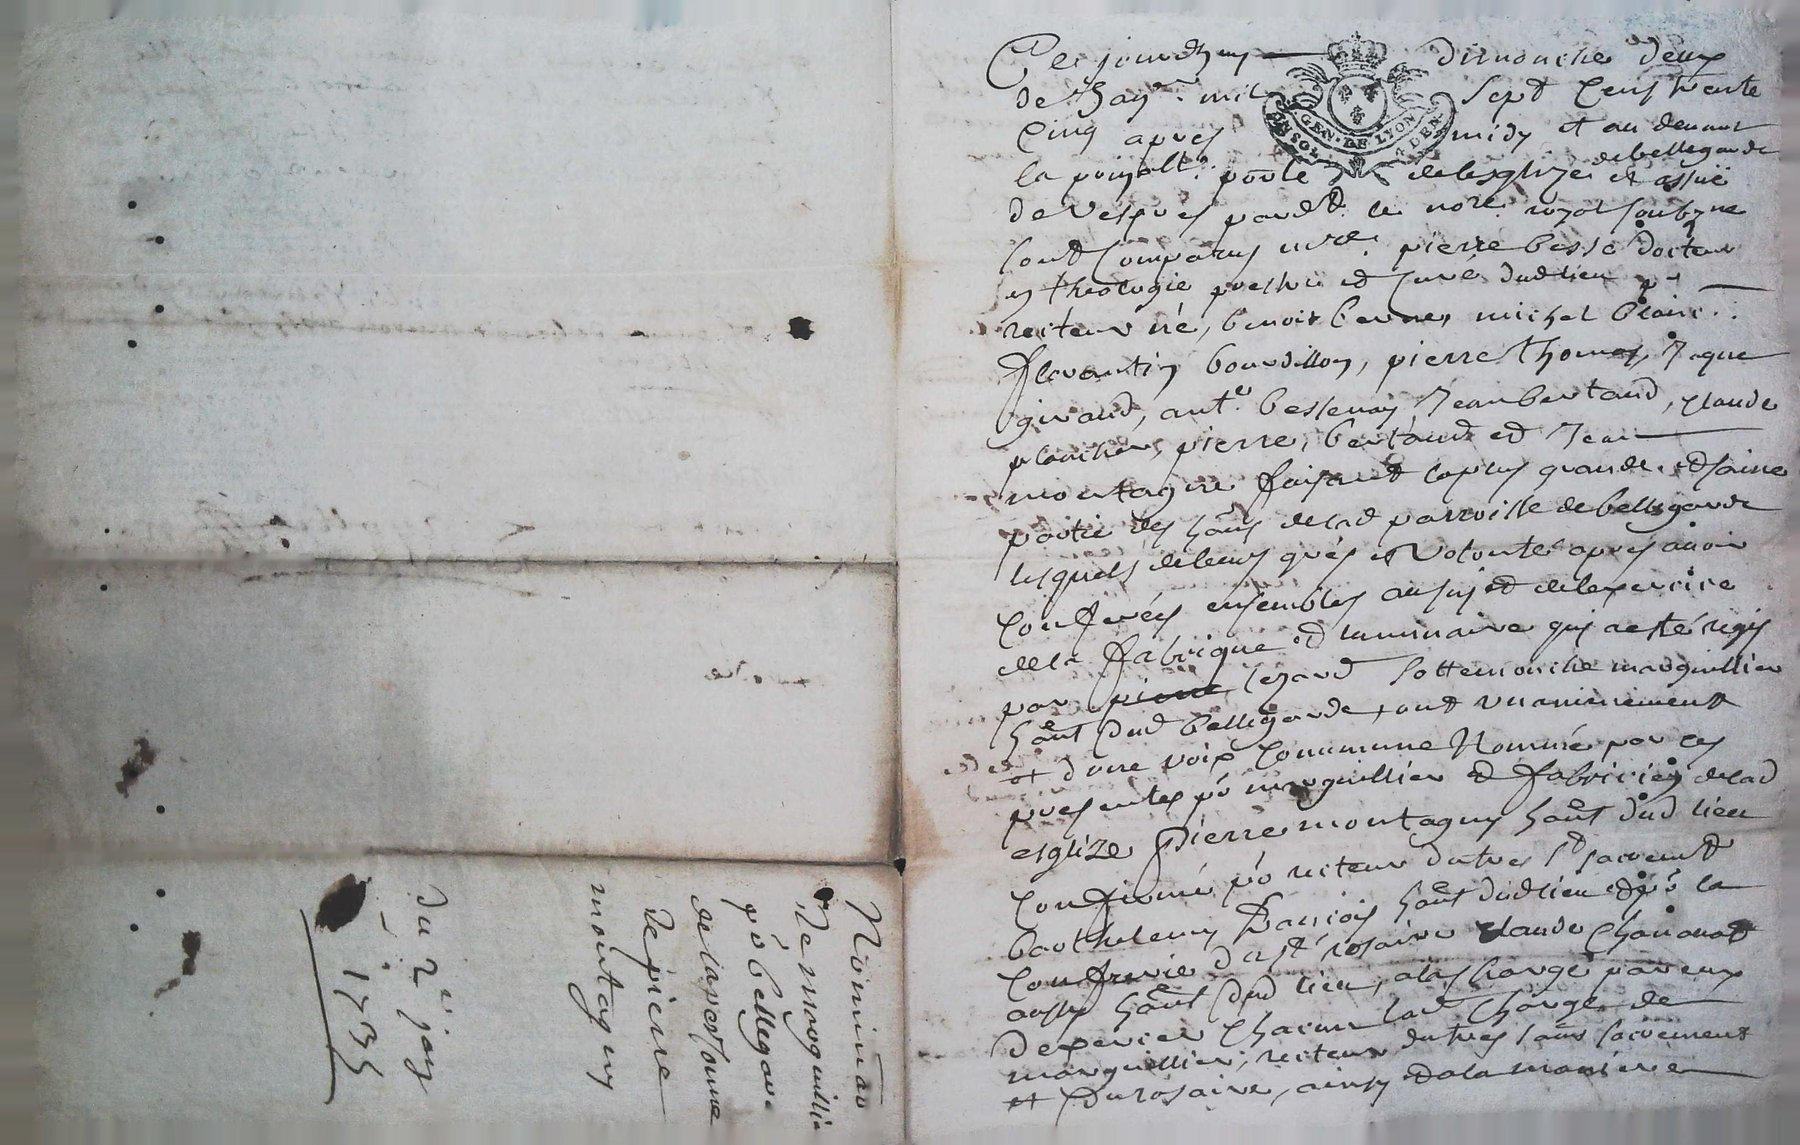 Ce jourdhuy dimanche deux
de Janr. mil sept cens trente
cinq apres midy et au devant
la poinsalle porte de lesglize de bellegarde et issue
de Vespres pard.t le no.re royal soubz.ne
sont comparus m.re pierre besse docteur
en theologie prestre et curé dud lieu p.r
recteur né, benoit michel blanc
florantin bourdillon, pierre thomas, Jaque
giraud, ant.e bessenay Jean bertaud, claude
planchet, pierre bertaud et Jean
montagne faisant la plus grande et saine
partie des hãns de lad parroisse de bellegarde
lesquels de leurs grés et volontés apres avoir
conferés ensembles au sujet de lexercice
de la fabrique et luminaire qui a esté regis
par pierre lezard sottemouche marguillier
hãnt dud bellegarde, ont unanimement
et dune voix commune Nommé par ces
presentes põ marguillier et fabricien de lad
esglize pierre montagny hãnt dud lieu
confirmé põ recteur du tres s.t sacrem.t
barthelemy hãnt dud lieu et põ la
confrerie du s.t rosaire claude Chavanat
aussy hãnt dud lieu, a la charge par eux
dexercer chacun lad charge de
marguillier, recteur du tres saint sacrement
et du rosaire, ainsy et de la maniere
Nominaõn
de marguillier
põ bellegarde
de la personne
de pierre
montagny
du 2.e janr
1735
GEN·DE·LYON